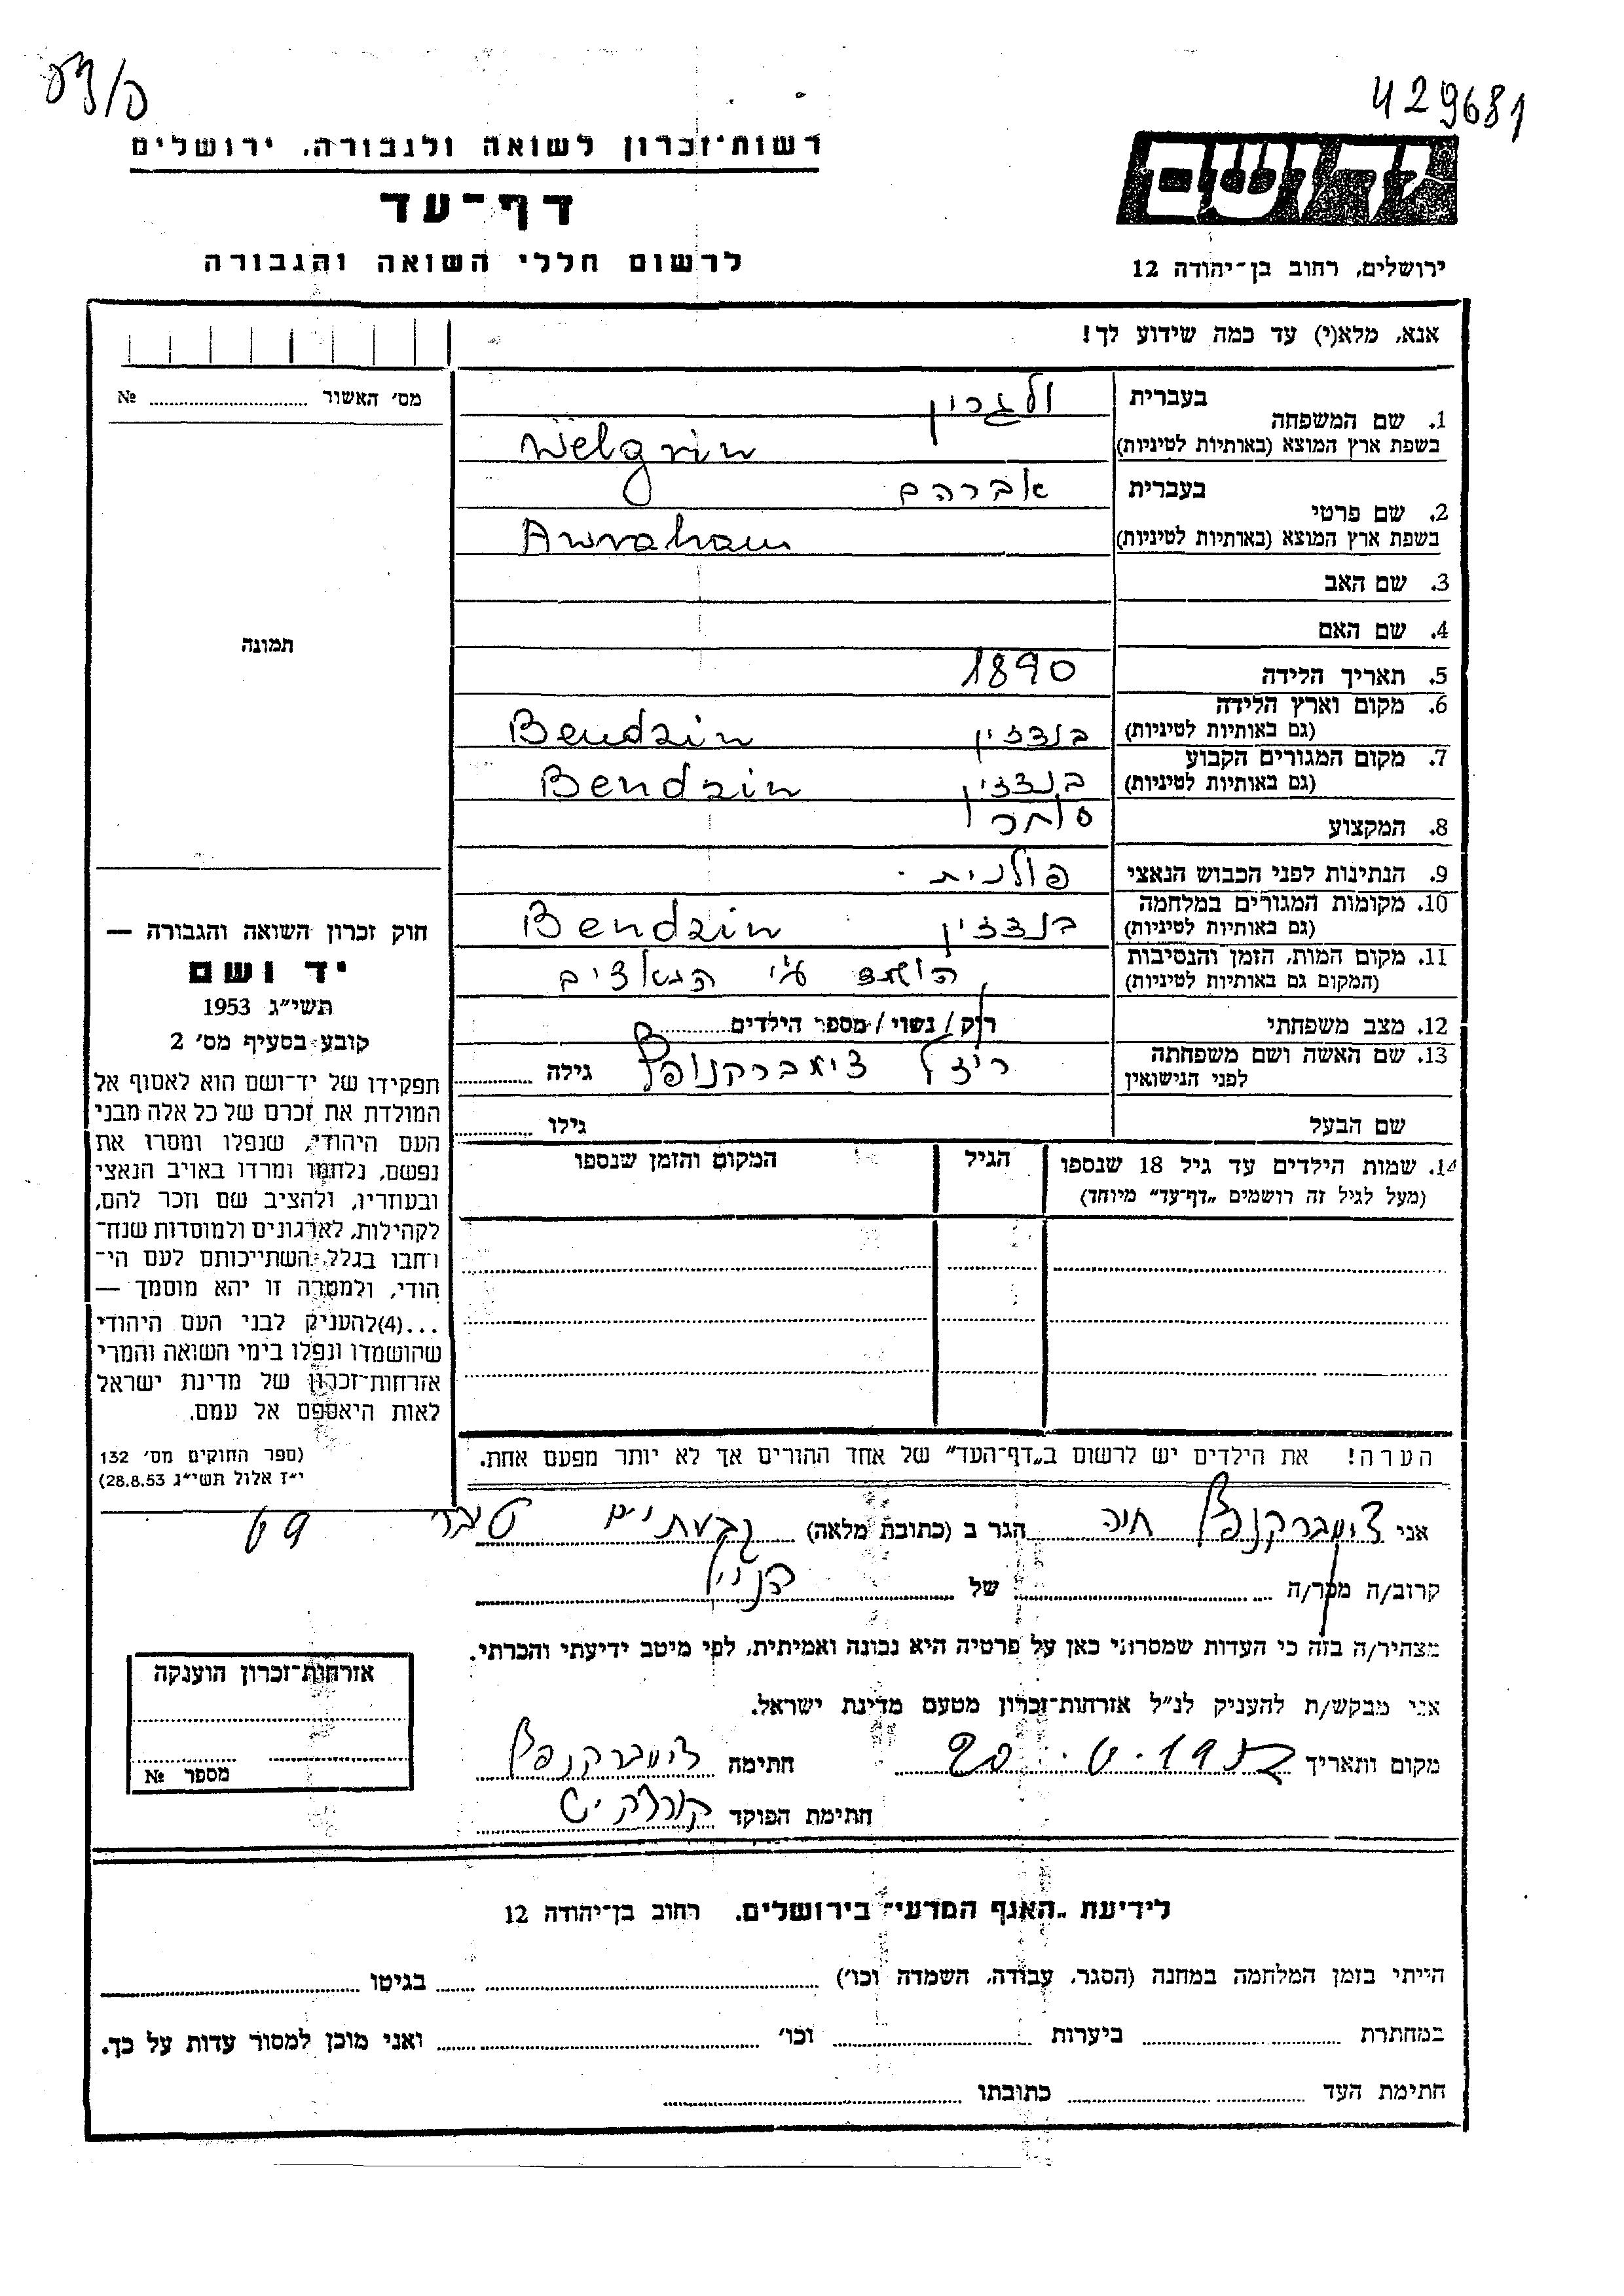 429681
רשות־זכרון לשואה ולגבורה, ירושלים
יד ושם
דף־עד
לרשום חללי השואה והגבורה
ירושלים, רחוב בן־יהודה 12
אנא, מלא(י) עד כמה שידוע לך!
מס׳ האשור № 
1. שם המשפחה
בעברית ולגרין
בשפת ארץ המוצא (באותיות לטיניות) Welgrin
2. שם פרטי
בעברית אברהם
בשפת ארץ המוצא (באותיות לטיניות) Awraham
3. שם האב
4. שם האם
תמונה
5. תאריך הלידה 1890
6. מקום וארץ הלידה
(גם באותיות לטיניות) בנדזין Bendzin
7. מקום המגורים הקבוע
(גם באותיות לטיניות) בנדזין Bendzin
8. המקצוע סוחר
9. הנתינות לפני הכבוש הנאצי פולנית
10. מקומות המגורים במלחמה
(גם באותיות לטיניות) בנדזין Bendzin
11. מקום המות, הזמן והנסיבות
(המקום גם באותיות לטיניות) הושמד ע״י הנאצים
12. מצב משפחתי רוק / נשוי / מספר הילדים
13. שם האשה ושם משפחתה
לפני הנישואין ריזל צימברקנופף גילה
שם הבעל גילו
14. שמות הילדים עד גיל 18 שנספו הגיל המקום והזמן שנספו
(מעל לגיל זה רושמים „דף־עד״ מיוחד)
הערה! את הילדים יש לרשום ב„דף־העד״ של אחד ההורים אך לא יותר מפעם אחת.
חוק זכרון השואה והגבורה —
יד ושם
תשי״ג 1953
קובע בסעיף מס׳ 2
תפקידו של יד־ושם הוא לאסוף אל
המולדת את זכרם של כל אלה מבני
העם היהודי, שנפלו ומסרו את
נפשם, נלחמו ומרדו באויב הנאצי
ובעוזריו, ולהציב שם וזכר להם,
לקהילות, לארגונים ולמוסדות שנח־
רחבו בגלל השתייכותם לעם הי־
הודי, ולמטרה זו יהא מוסמך —
...(4)להעניק לבני העם היהודי
שהושמדו ונפלו בימי השואה והמרי
אזרחות־זכרון של מדינת ישראל
לאות היאספם אל עמם.
(ספר החוקים מס׳ 132
י״ז אלול תשי״ג 28.8.53)
אני צימברקנופף חנה הגר ב (כתובת מלאה) גבעתיים
קרוב/ה מכר/ה של הנ״ל
מצהיר/ה בזה כי העדות שמסרתי כאן על פרטיה היא נכונה ואמיתית, לפי מיטב ידיעתי והכרתי.
אני מבקש/ת להעניק לנ״ל אזרחות־זכרון מטעם מדינת ישראל.
מקום ותאריך חתימה צימברקנופף
חתימת הפוקד
אזרחות־זכרון הוענקה
מספר №
לידיעת „האגף המדעי״ בירושלים, רחוב בן־יהודה 12
הייתי בזמן המלחמה במחנה (הסגר, עבודה, השמדה וכו׳) בגיטו
במחתרת ביערות וכו׳ ואני מוכן למסור עדות על כך.
חתימת העד כתובתו